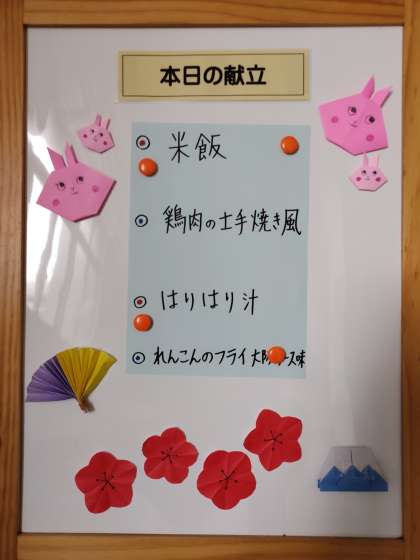 本日の献立
米飯
鶏肉の土手焼き風
はりはり汁
れんこんのフライ 大阪ース味